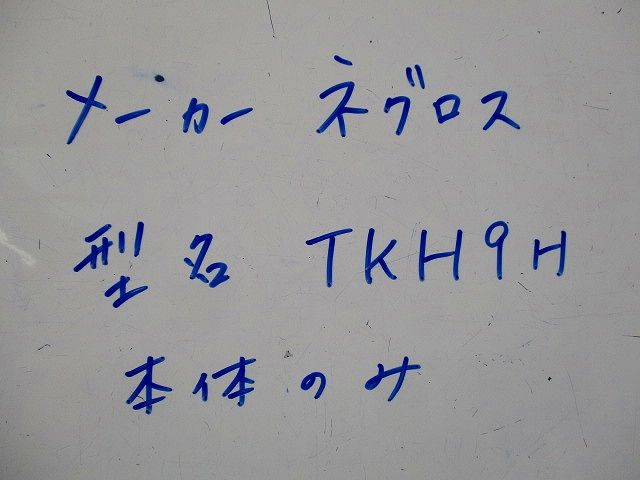 メーカー ネグロス
型名 TKH9H
本体のみ